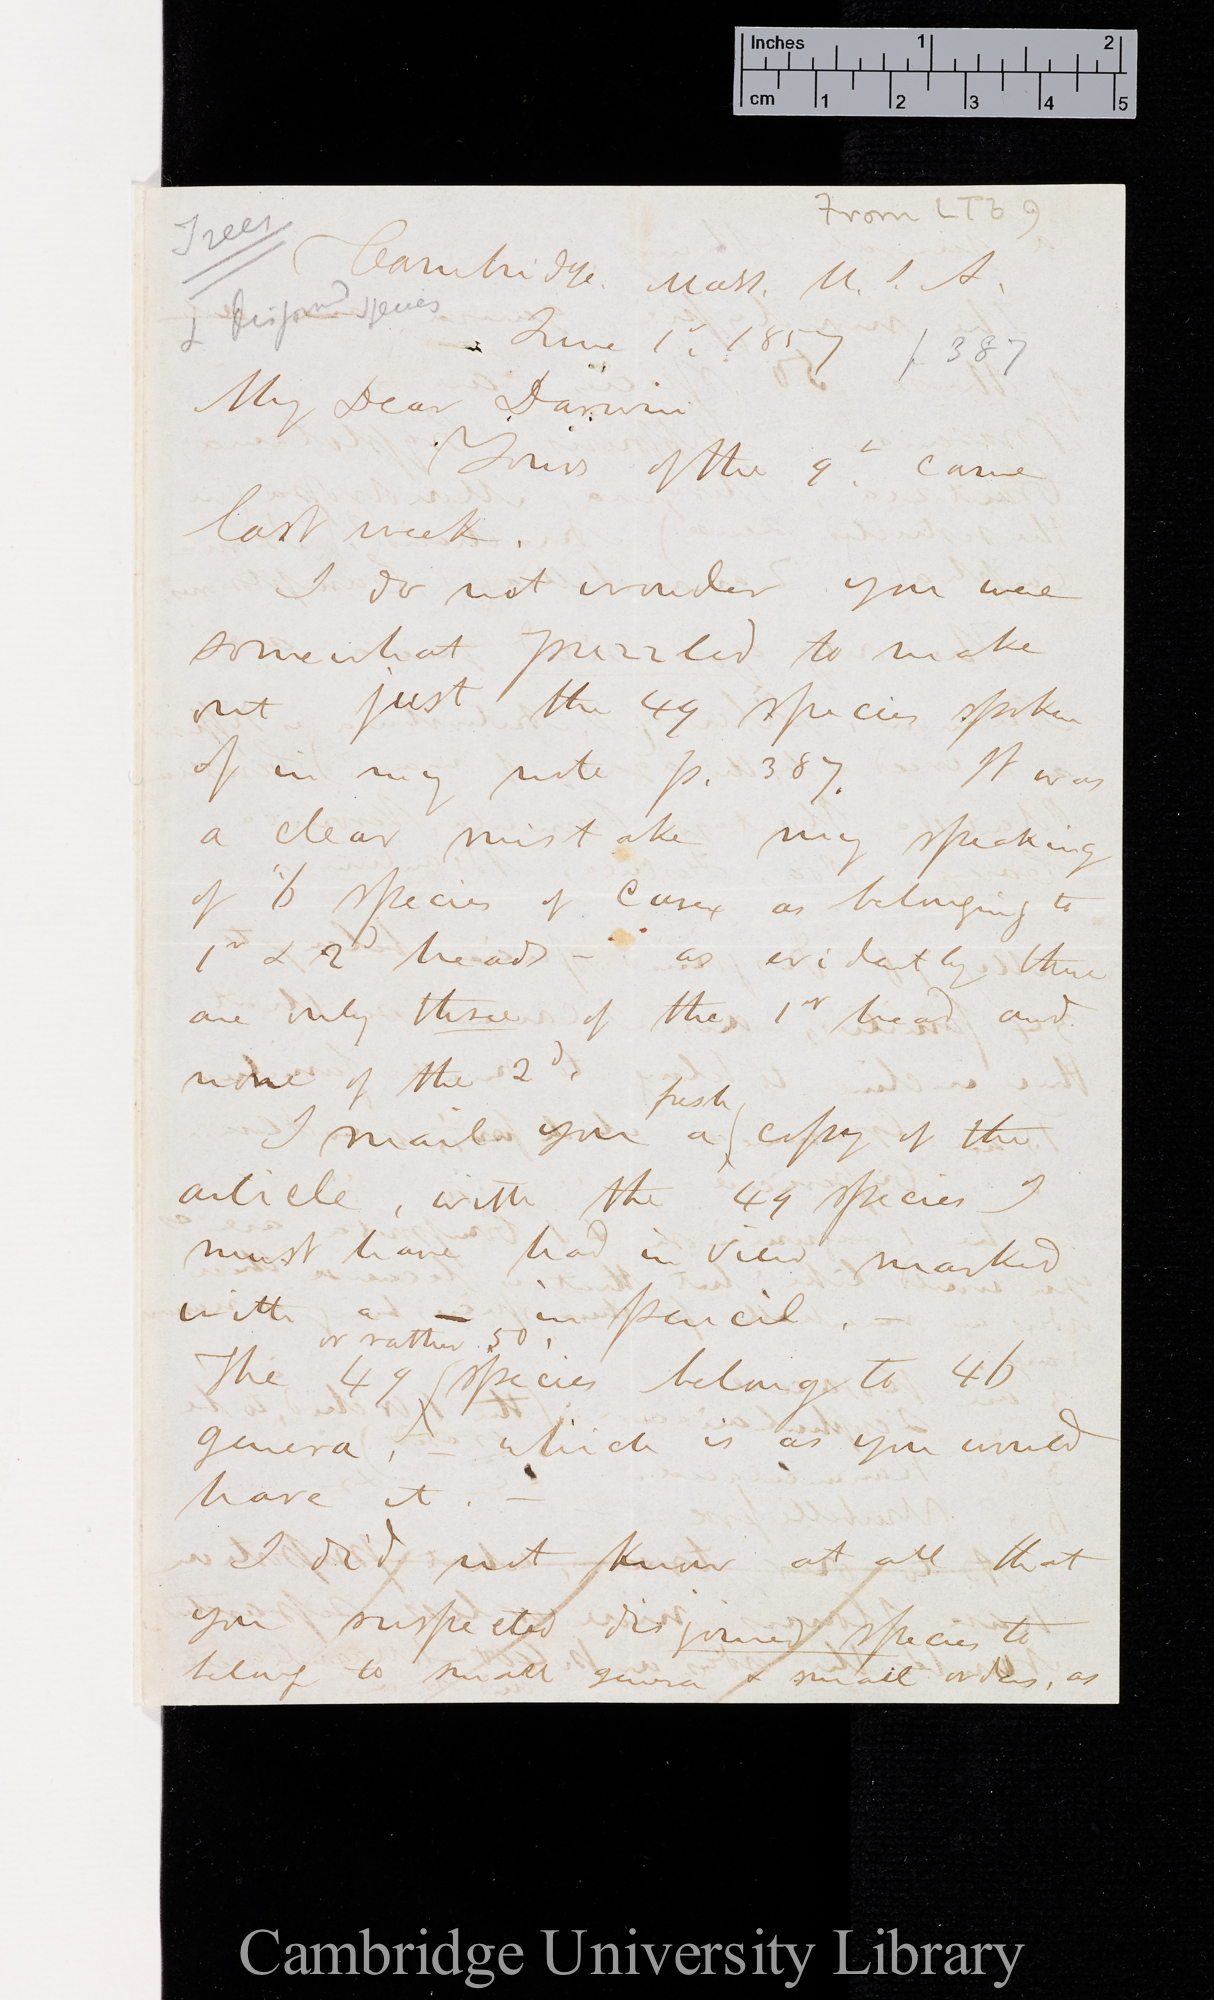 Inches 1 2
cm 1 2 3 4 5
From LTB 9
Trees
& disjoined species
Cambridge. Mass. U. S. A.
June 1st. 1857
p. 387
My Dear Darwin
Yours of the 9th. came
last week.
I do not wonder you were
somewhat puzzled to make
out just the 49 species spoken
of in my note p. 387. It was
a clear mistake my speaking
of "6 species of Carex as belonging to
1st & 2d heads – as evidently there
are only three of the 1st head and
none of the 2d.
I mail you a fresh copy of the
article, with the 49 species I
must have had in view marked
with a – in pencil. –
The 49 or rather 50, species belong to 46
genera, – which is as you would
have it. –
I did not know at all that
you suspected disjoined species to
belong to small genera & small orders, as
Cambridge University Library